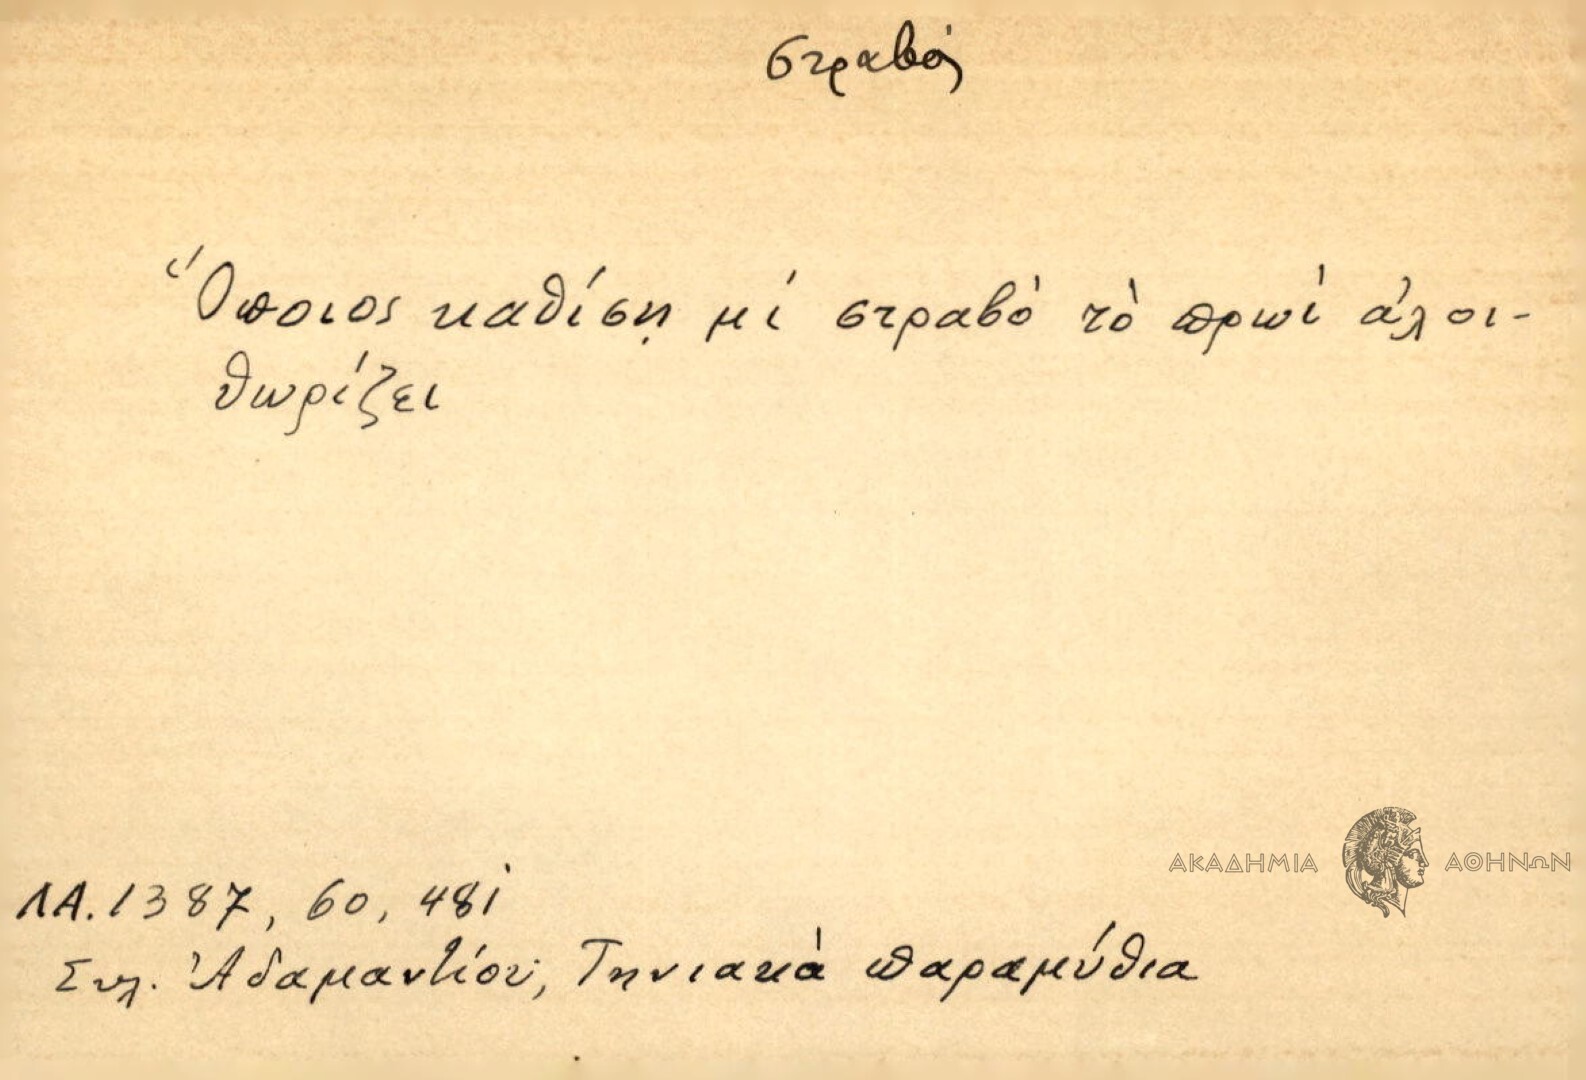 στραβός
Ὅποιος καθίσῃ μὲ στραβὸ τὸ πρωὶ ἀλοι-
θωρίζει
ΛΑ. 1387, 60, 481
Συλ. Ἀδαμαντίου, Τηνιακὰ παραμύθια
ΑΚΑΔΗΜΙΑ ΑΘΗΝΩΝ